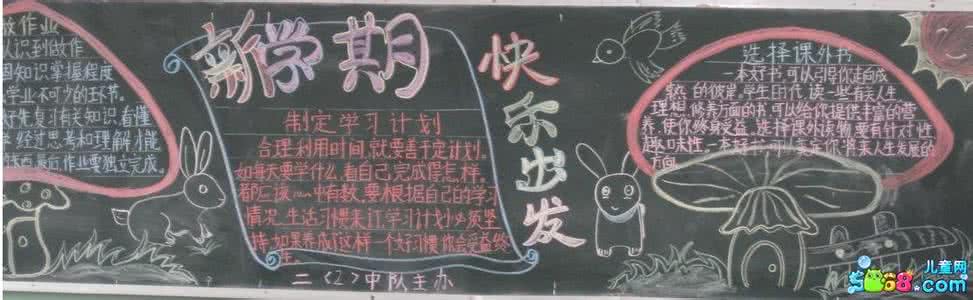 放作业
认识到做作
固知识掌握程度
学业不可少的环节。
好先复习有关知识,看懂
经过思考和理解,才能
最后作业要独立完成。
新学期
制定学习计划
合理利用时间,就要善于定计划。
如每天要学什么,看自己完成得怎样。
都应该心中有数,要根据自己的学习
情况、生活习惯来订,学习计划必须坚
持,如果养成这样一个好习惯你会受益终
生。
二〈2〉中队主办
快乐出发
选择课外书
一本好书,可以引导你走向成
熟的彼岸,学生时代,读一些有关人生
理想、修养方面的书,可以给你提供丰富的营
养,使你终身受益。选择课外读物,要有针对性
趣味性。一本好书可以奠定你将来人生发展的
方向
儿童网
5068.com